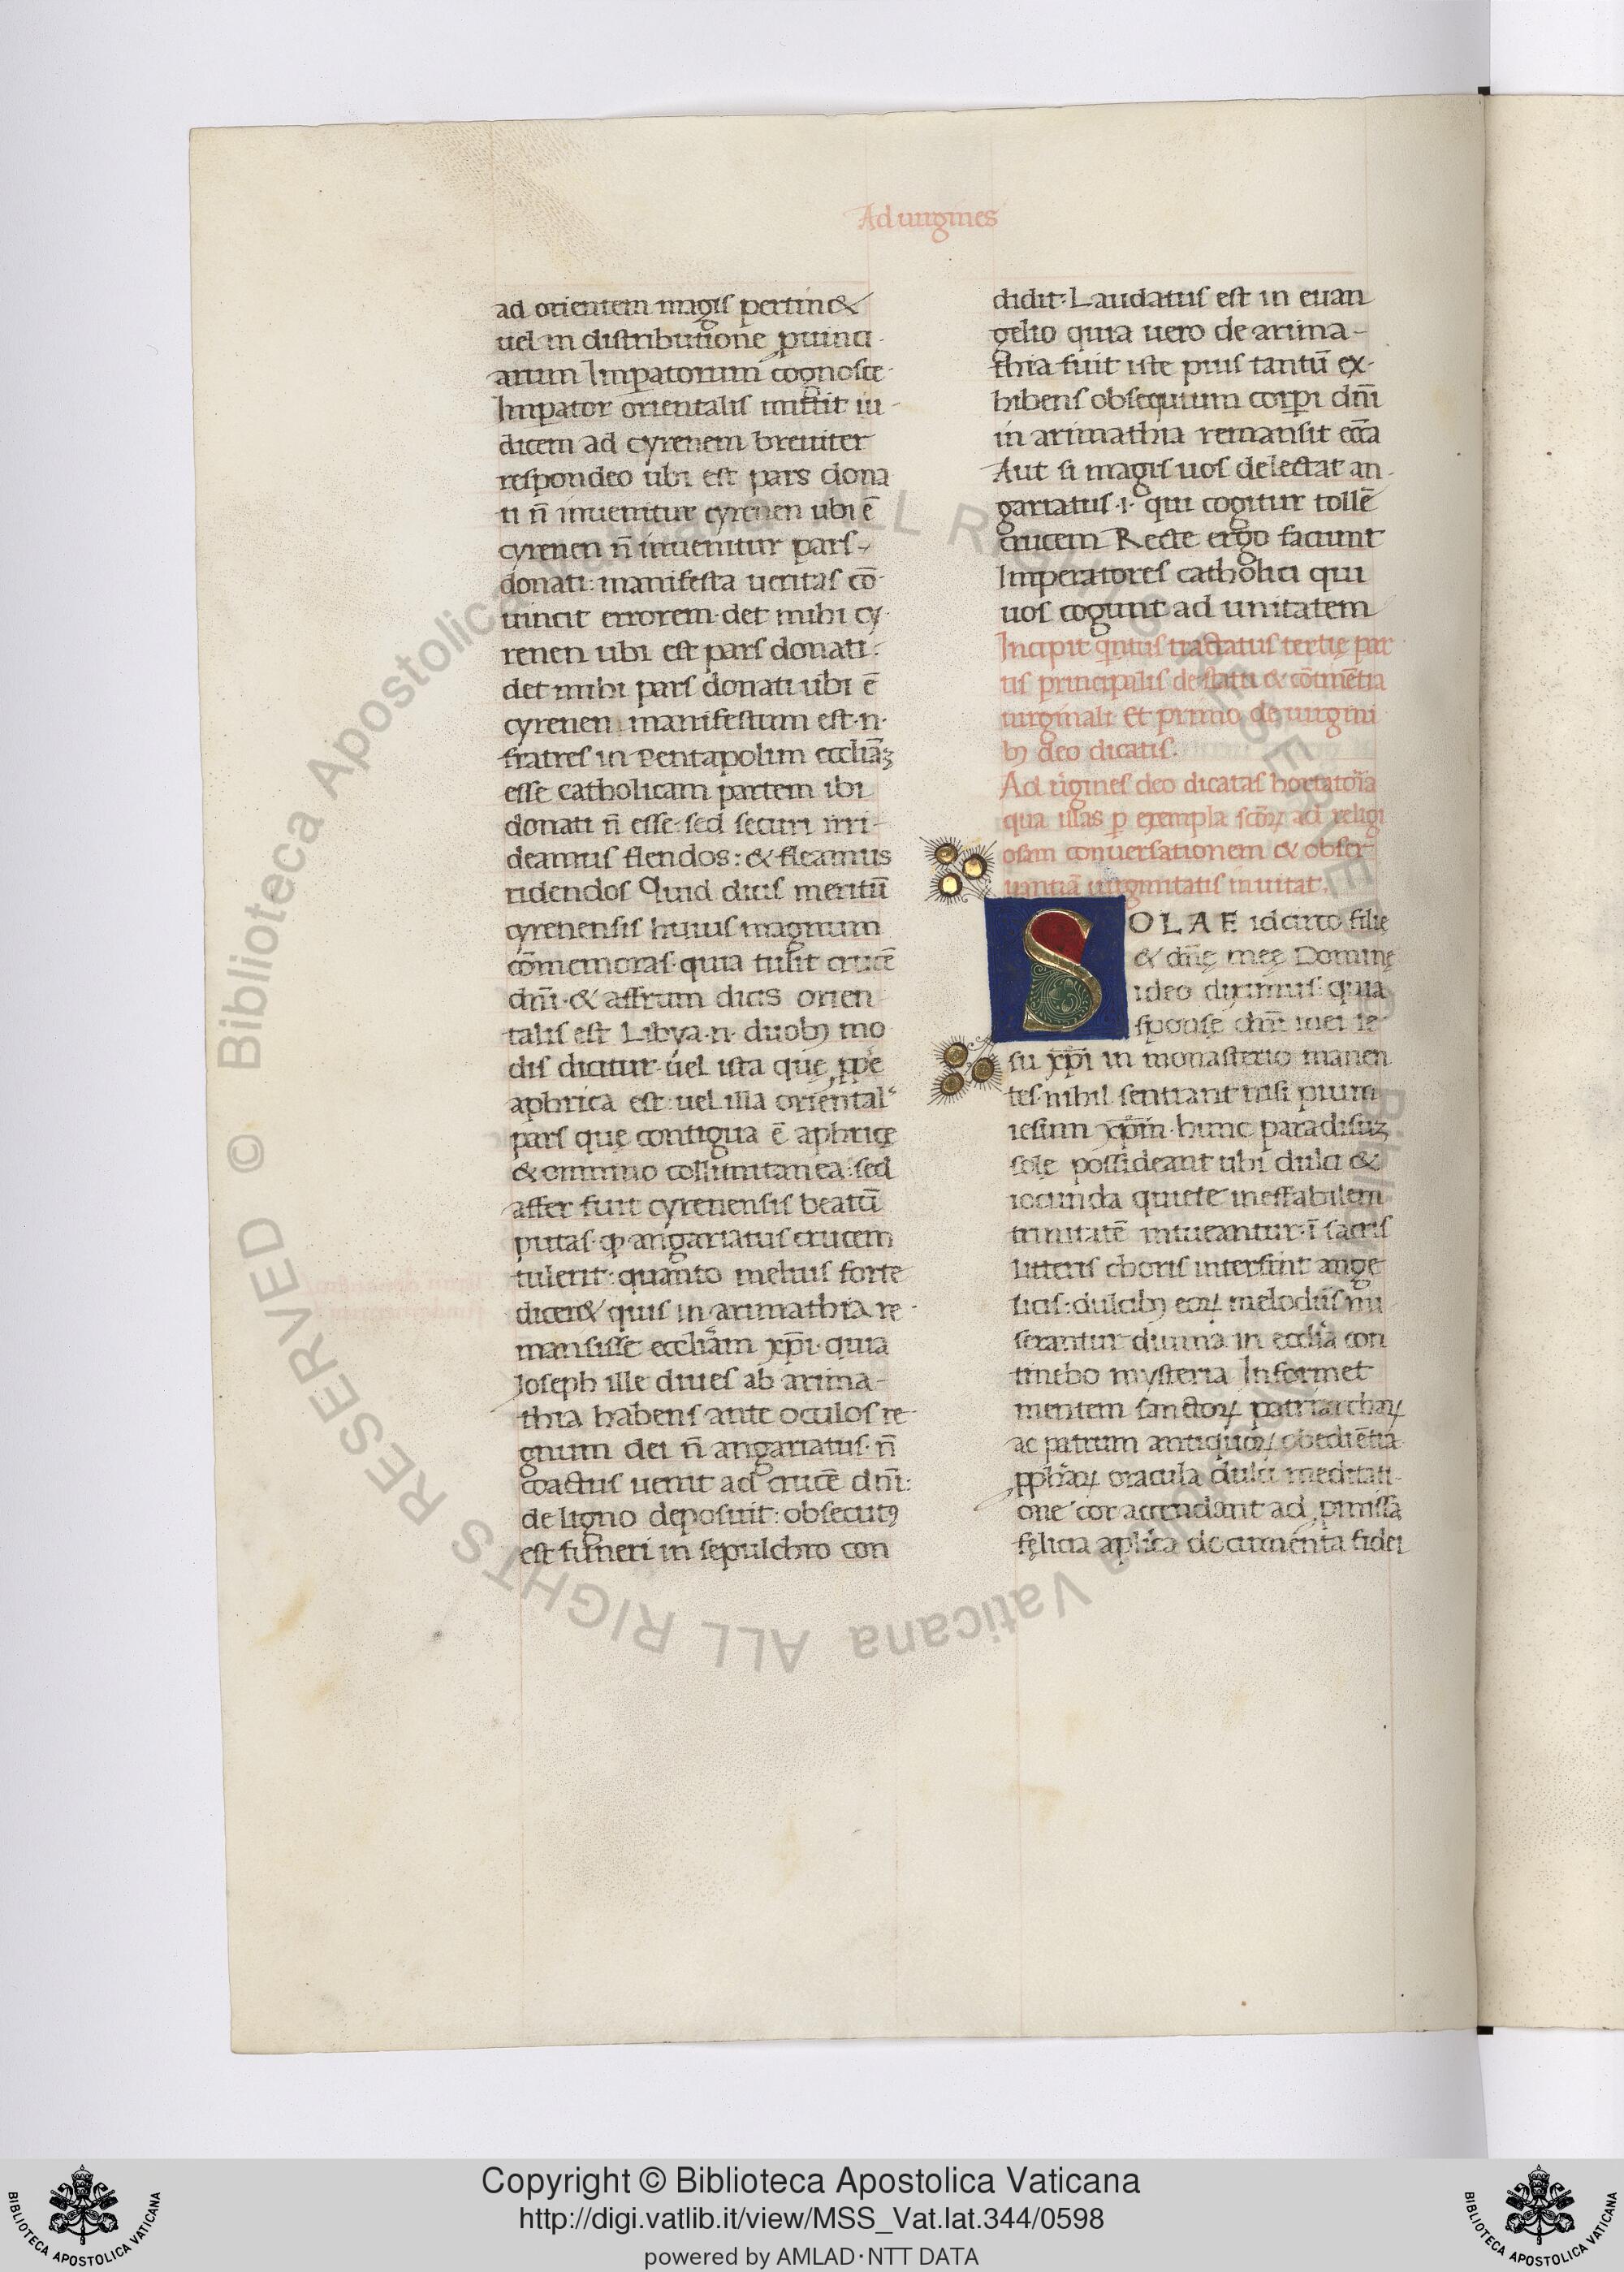 Ad uirgines
ad orientem magis pertin&
uel in distributione ꝓuinci
arum Imꝑatorum cognosce
Imꝑator orientalis mittit iu
dicem ad cyrenem breuiter
respondeo ubi est pars dona
ti n̄ inuenitur cyrenen ubi ē
cyrenen n̄ inuenitur pars
donati: manifesta ueritas cō
uincit errorem· det mihi cy
renen ubi est pars donati:
det mihi pars donati ubi ē
cyrenen manifestum est·n·
fratres in Pentapolim eccliāꝫ
esse catholicam partem ibi
donati n̄ esse· sed securi irri
deamus flendos: & fleamus
ridendos Quid dicis meritū
cyrenensis huius magnum
cōmemoras· quia tulit crucē
dn̄i· & affrum dicis orien
talis est Libya·n· duobꝫ mo
dis dicitur· uel ista quę ꝓpe
aphrica est: uel illa oriental
pars quę contigua ē aphricę
& omnino collimitanea: sed
affer fuit cyrenensis beatū
putas· ꝙ angariatus crucem
tulerit: quanto melius forte
dicer& quis in arimathia re
mansisse eccliam xp̄i· quia
Ioseph ille diues ab arima
thia habens ante oculos re
gnum dei n̄ angariatus· n̄
coactus uenit ad crucē dn̄i:
de ligno deposuit: obsecutꝰ
est funeri in sepulchro con
didit· Laudatus est in euan
gelio quia uero de arima
thia fuit iste pius tantū ex
hibens obsequium corꝑi dn̄i
in arimathia remansit ecc̄a
Aut si magis uos delectat an
gariatus ·i· qui cogitur tollē
crucem Recte ergo faciunt
Imperatores catholici qui
uos cogunt ad unitatem
Incipit quintus tractatus tertię par
tis principalis de statu & cōtinētia
uirginali Et primo de uirgini
bꝫ deo dicatis·
Ad uirgines deo dicatas hortatoria
qua illas ꝑ exempla scōꝝ ad religi
osam conuersationem & obser
uantiā uirginitatis inuitat·
SOLAE idcirco filię
& dn̄ę meę Dominę
ideo diximus· quia
sponsę dn̄i mei ie
su xp̄i in monasterio manen
tes· nihil sentiant nisi pium
iesum xp̄m· hunc paradisuꝫ
solę possideant ubi dulci &
iocunda quiete ineffabilem
trinitatē intueantur· ī sacris
litteris choris intersint ange
licis: dulcibꝫ eoꝝ melodiis mi
serantur diuina in ecclia con
tinebo mysteria Informet
mentem sanctoꝝ patriarchaꝝ
ac patrum antiquoꝝ obediētia
ꝓphāꝝ oracula dulci meditati
one cor accendant ad ꝓmissa
fęlicia aplīca documenta fidei
© Biblioteca Apostolica Vaticana ALL RIGHTS RESERVED
Copyright © Biblioteca Apostolica Vaticana
http://digi.vatlib.it/view/MSS_Vat.lat.344/0598
powered by AMLAD·NTT DATA
BIBLIOTECA APOSTOLICA VATICANA
BIBLIOTECA APOSTOLICA VATICANA